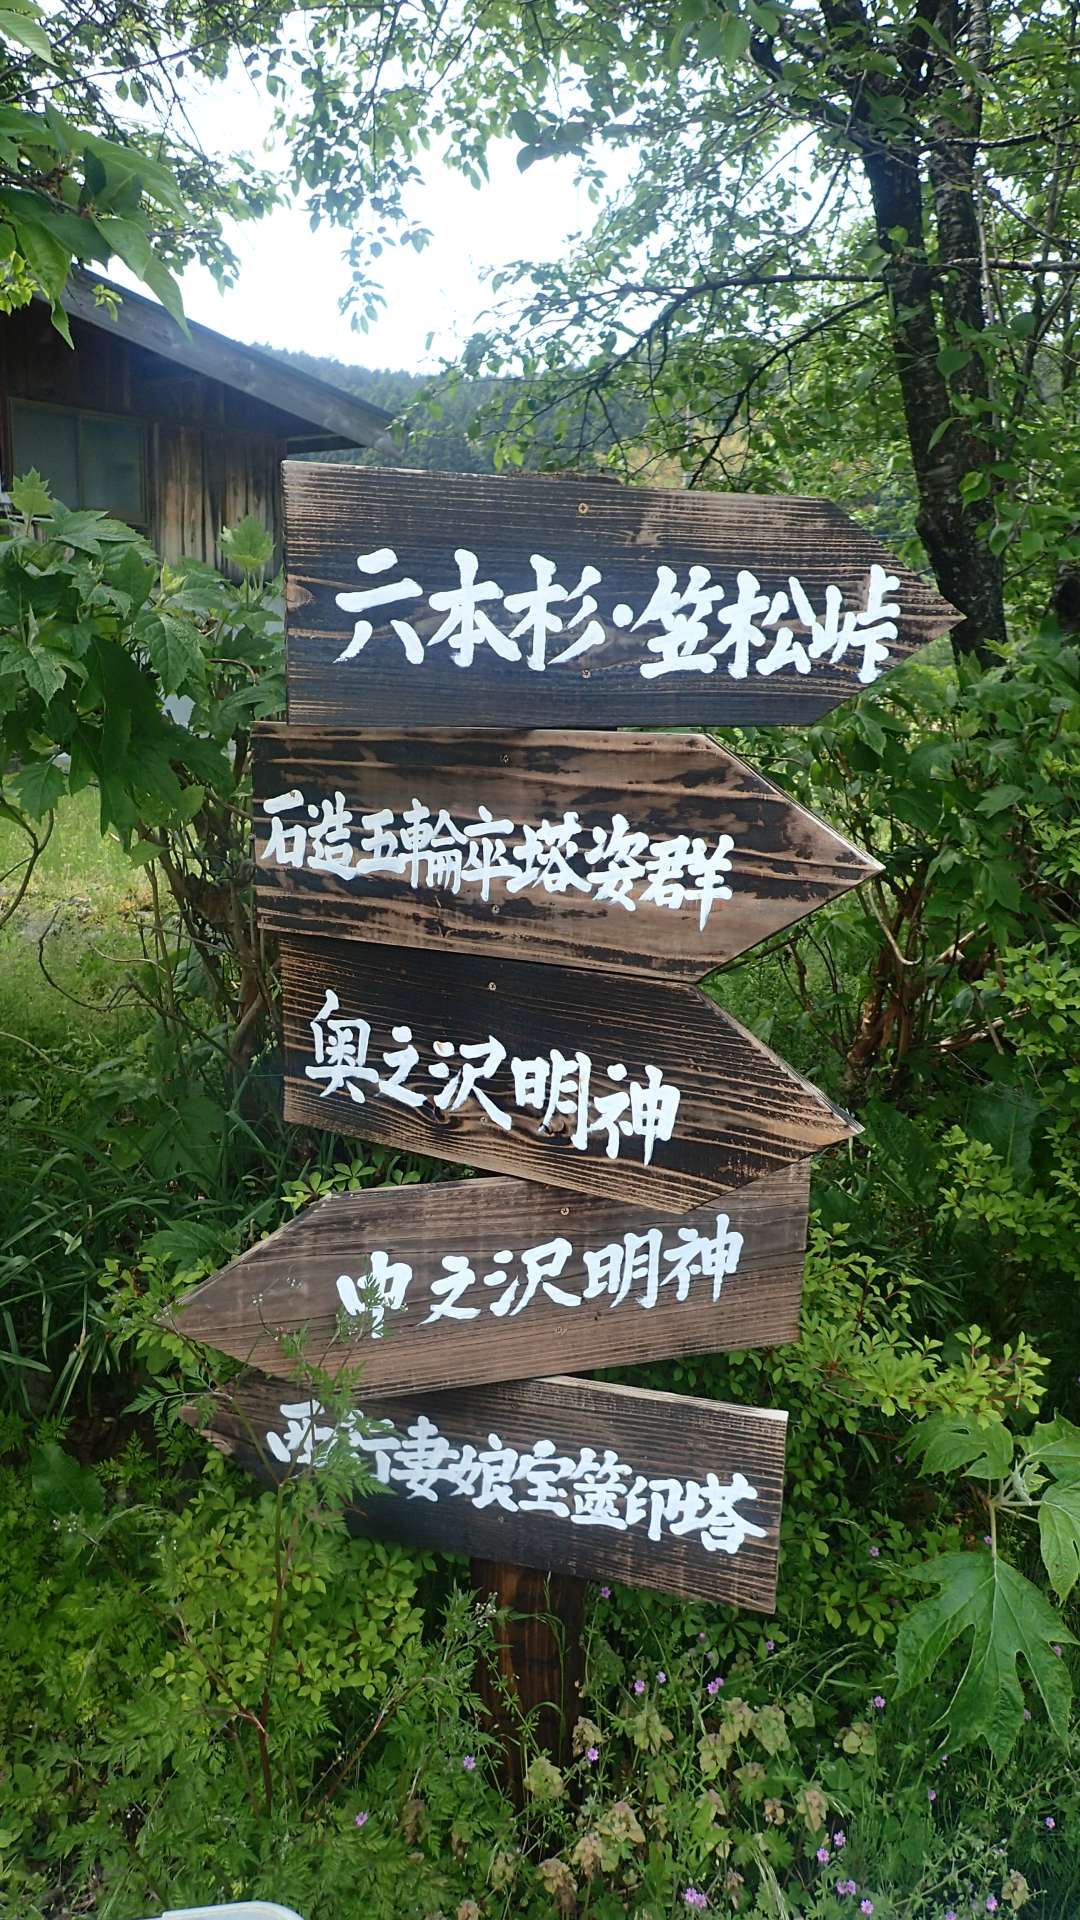 六本杉・笠松峠
石造五輪卒塔婆群
奥之沢明神
中之沢明神
西行妻娘宝篋印塔